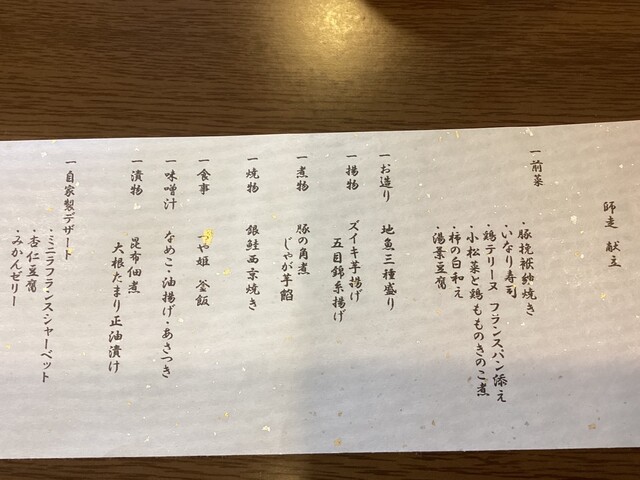 師走 献立
一 前菜
・豚挽袱紗焼き
・いなり寿司
・鶏テリーヌ フランスパン添え
・小松菜と鶏もものきのこ煮
・柿の白和え
・湯葉豆腐
一 お造り 地魚三種盛り
一 揚物 ズイキ芋揚げ
五目錦糸揚げ
一 煮物 豚の角煮
じゃが芋餡
一 焼物 銀鮭西京焼き
一 食事 つや姫 釜飯
一 味噌汁 なめこ・油揚げ・あさつき
一 漬物 昆布佃煮
大根たまり正油漬け
一 自家製デザート
・ミニフランスシャーベット
・杏仁豆腐
・みかんゼリー